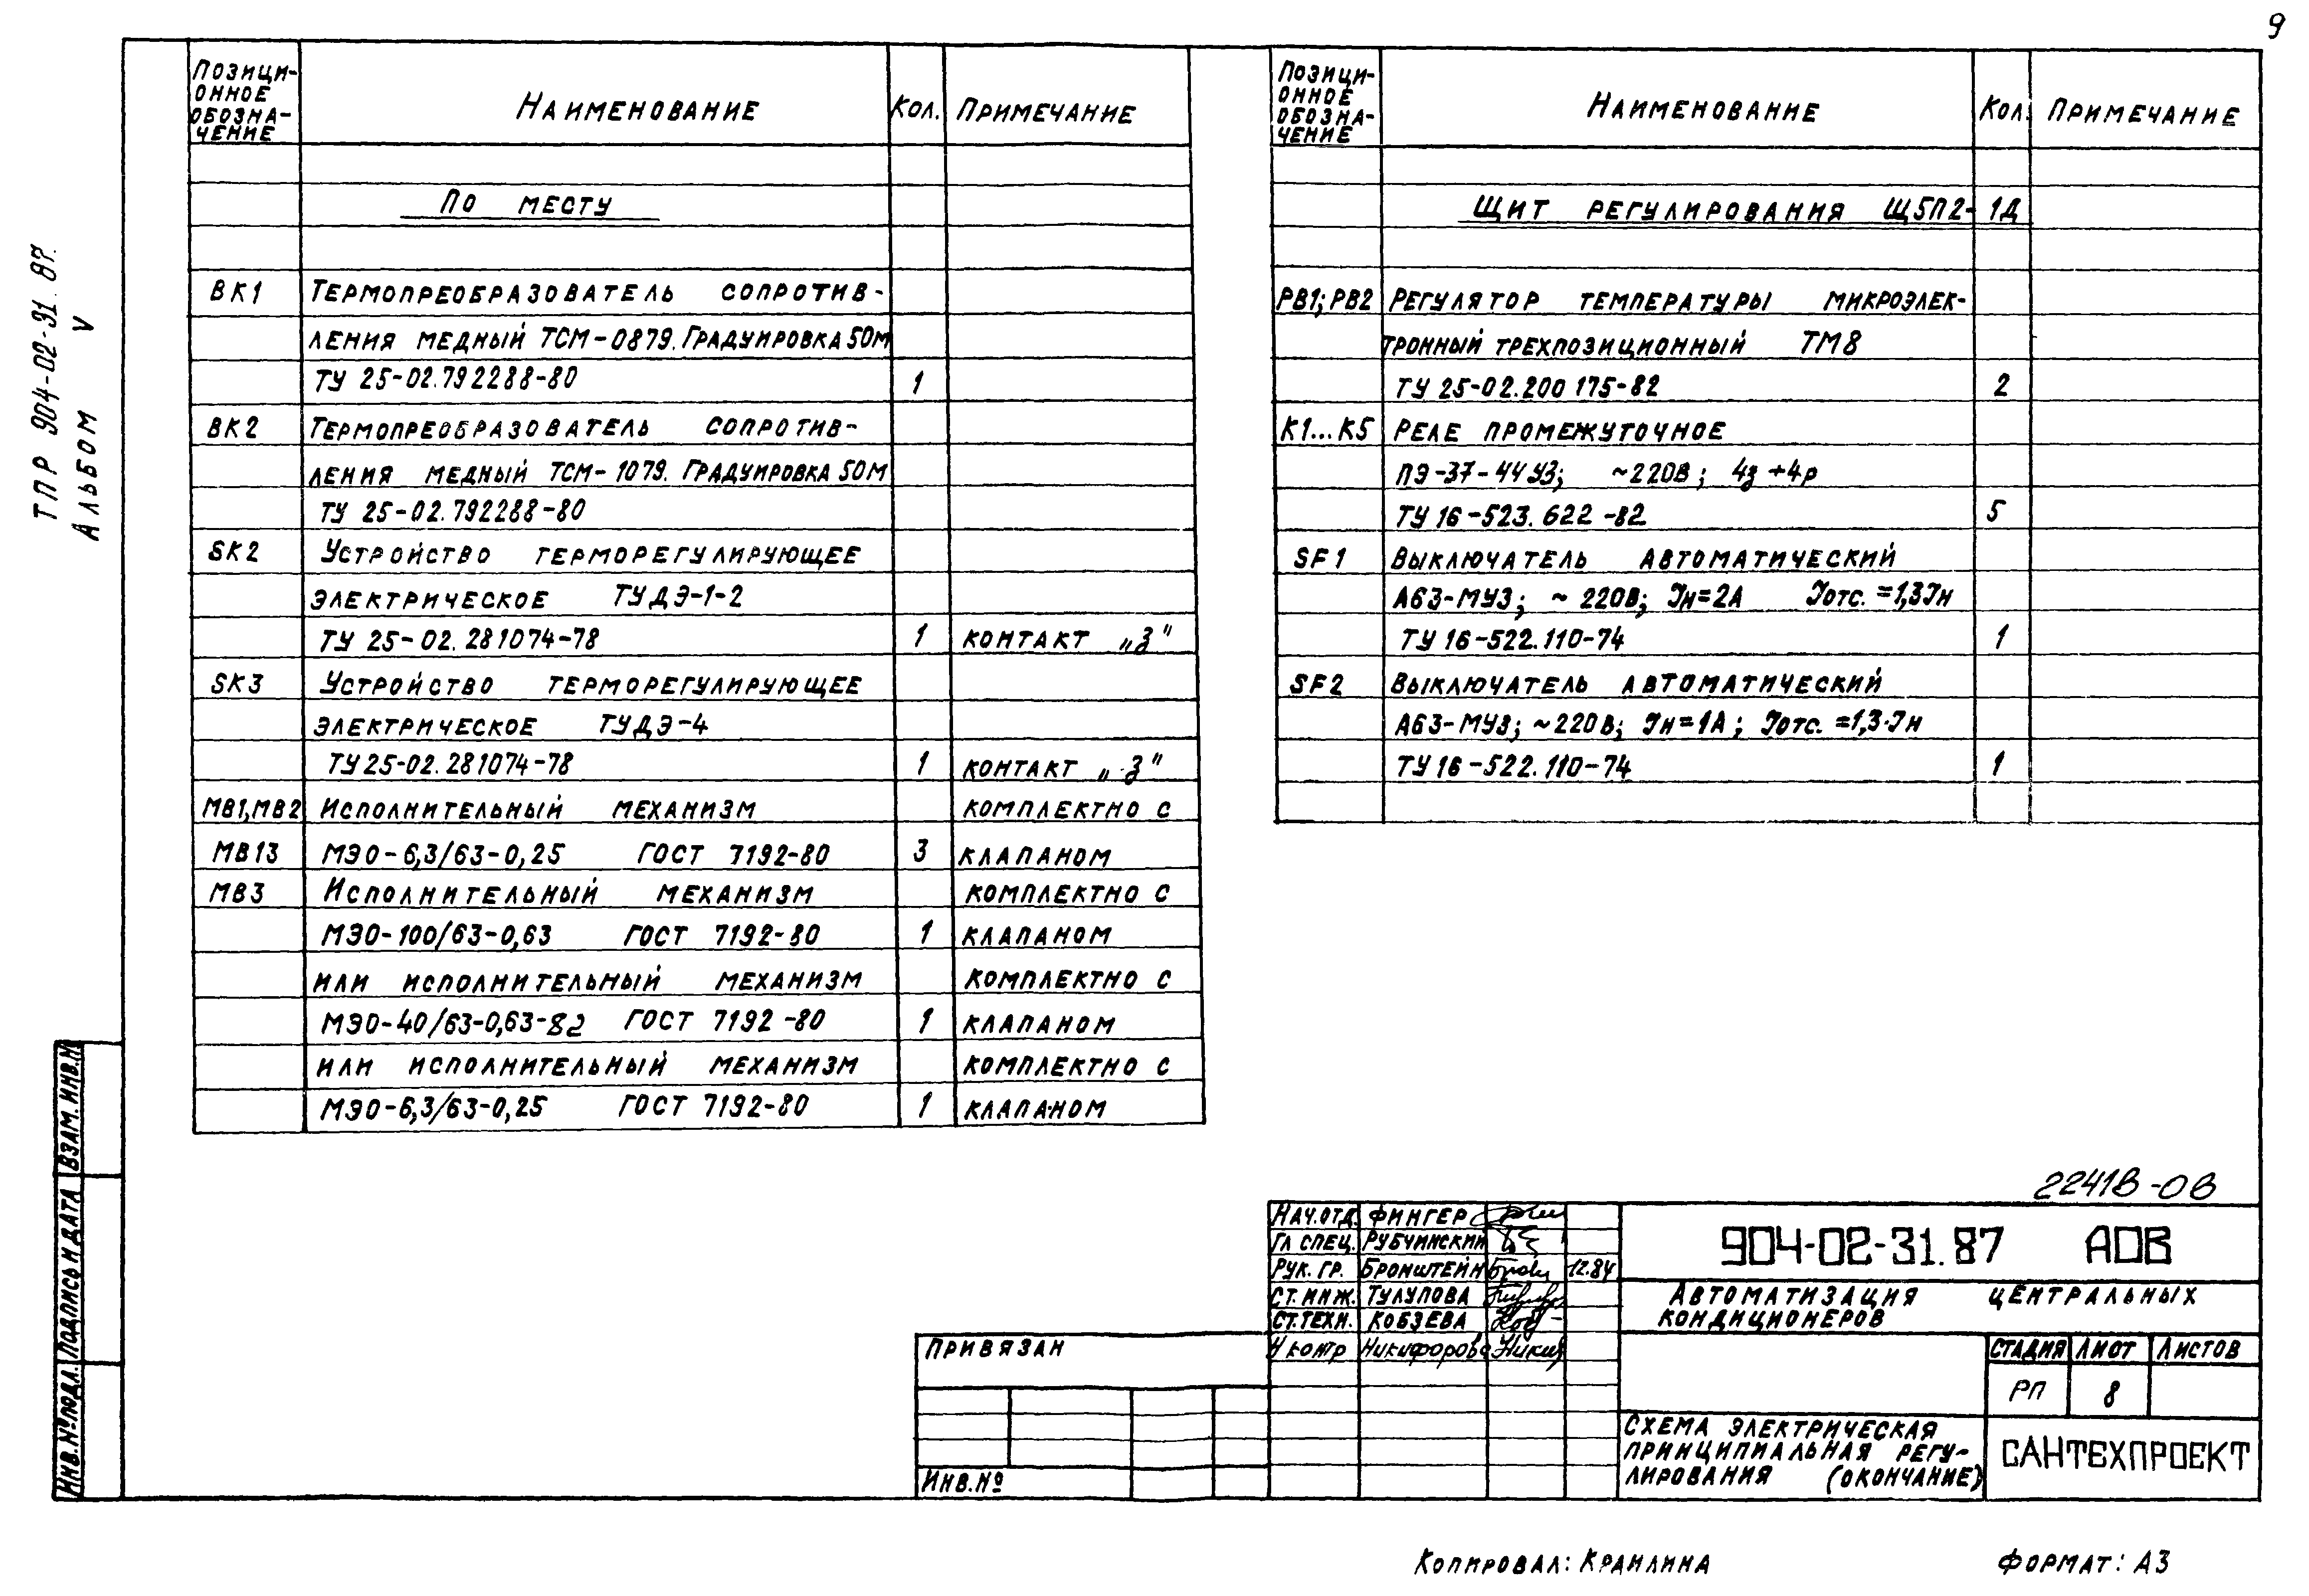 9
ТПР 904-02-31.87.
Альбом V
Позици-
онное
обозна-
чение
Наименование
Кол.
Примечание
По месту
ВК1 Термопреобразователь сопротив-
ления медный ТСМ-0879. Градуировка 50М
ТУ 25-02.792288-80 1
ВК2 Термопреобразователь сопротив-
ления медный ТСМ-1079. Градуировка 50М
ТУ 25-02.792288-80
SK2 Устройство терморегулирующее
электрическое ТУДЭ-1-2
ТУ 25-02.281074-78 1 контакт „З"
SK3 Устройство терморегулирующее
электрическое ТУДЭ-4
ТУ 25-02.281074-78 1 контакт „З"
МВ1,МВ2 Исполнительный механизм комплектно с
МВ13 МЭО-6,3/63-0,25 ГОСТ 7192-80 3 клапаном
МВ3 Исполнительный механизм комплектно с
МЭО-100/63-0,63 ГОСТ 7192-80 1 клапаном
или исполнительный механизм комплектно с
МЭО-40/63-0,63-82 ГОСТ 7192-80 1 клапаном
или исполнительный механизм комплектно с
МЭО-6,3/63-0,25 ГОСТ 7192-80 1 клапаном
Позици-
онное
обозна-
чение
Наименование
Кол.
Примечание
Щит регулирования Щ5П2-1Д
РВ1; РВ2 Регулятор температуры микроэлек-
тронный трехпозиционный ТМ8
ТУ 25-02.200 175-82 2
К1...К5 Реле промежуточное
ПЭ-37-44У3; ~220В; 4з+4р
ТУ 16-523.622-82 5
SF1 Выключатель автоматический
А63-МУ3; ~220В; Iн=2А Iотс.=1,3Iн
ТУ 16-522.110-74 1
SF2 Выключатель автоматический
А63-МУ3; ~220В; Iн=1А; Iотс.=1,3·Iн
ТУ 16-522.110-74 1
Инв.№подл. Подпись и дата Взам.инв.№
22418-08
Нач.отд. Фингер
Гл спец. Рубчинский
Рук. гр. Бронштейн 12.84
Ст.инж. Тулупова
Ст.техн. Кобзева
Н контр Никифорова
904-02-31.87 АОВ
Автоматизация центральных
кондиционеров
Стадия Лист Листов
РП 8
Схема электрическая
принципиальная регу-
лирования (окончание)
САНТЕХПРОЕКТ
Привязан
Инв.№
Копировал: Кранлина
Формат: А3